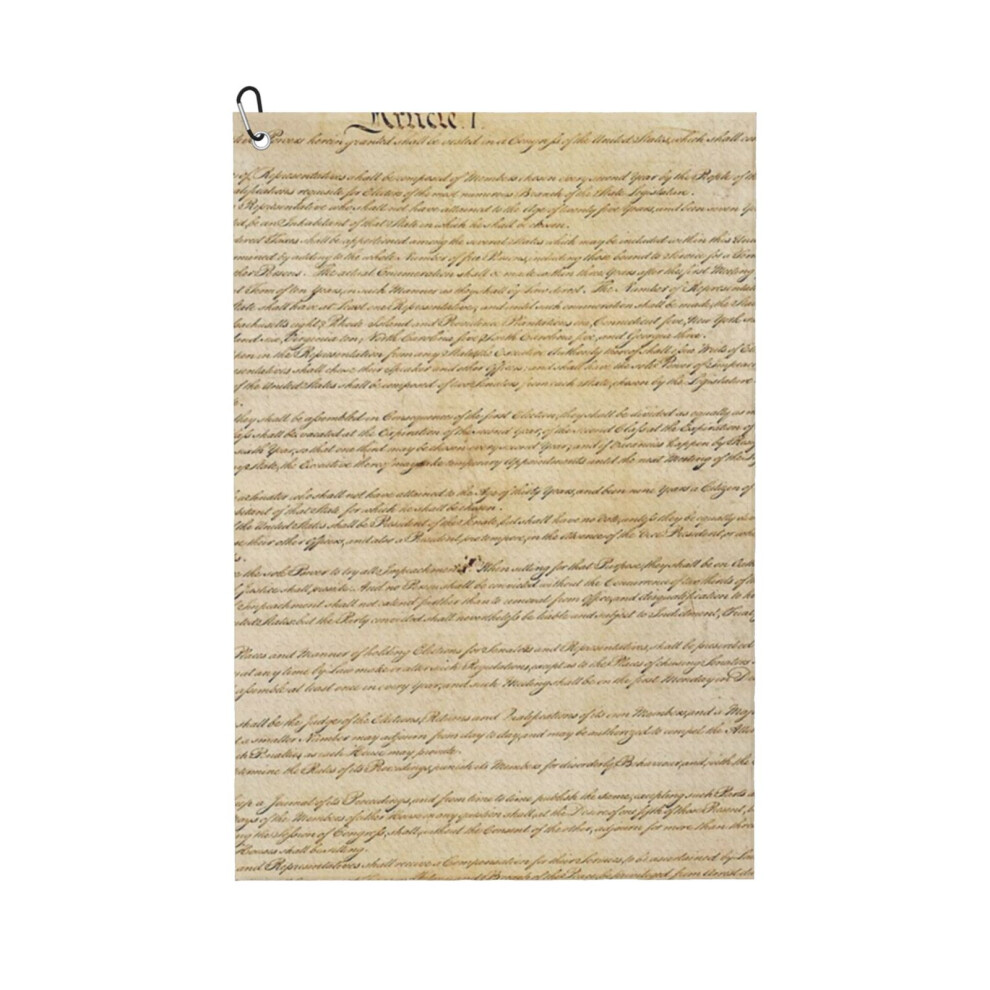 Article. I.
Powers herein granted shall be vested in a Congress of the United States, which shall con
of Representatives shall be composed of Members chosen every second Year by the People of th
alifications requisite for Electors of the most numerous Branch of the State Legislature.
Representative who shall not have attained to the Age of twenty five Years, and been seven Y
ot be an Inhabitant of that State in which he shall be chosen.
direct Taxes shall be apportioned among the several States which may be included within this Unio
mined by adding to the whole Number of free Persons, including those bound to Service for a Term
other Persons. The actual Enumeration shall be made within three Years after the first Meeting
t Term of ten Years, in such Manner as they shall by Law direct. The Number of Representati
tate shall have at Least one Representative; and until such enumeration shall be made, the State
sachusetts eight, Rhode Island and Providence Plantations one, Connecticut five, New York
land six, Virginia ten, North Carolina five, South Carolina five, and Georgia three.
pen in the Representation from any State, the Executive Authority thereof shall issue Writs of El
sentatives shall chuse their Speaker and other Officers; and shall have the sole Power of Impeac
of the United States shall be composed of two Senators from each State, chosen by the Legislature
they shall be assembled in Consequence of the first Election, they shall be divided as equally as m
shall be vacated at the Expiration of the second Year, of the second Class at the Expiration of
sixth Year, so that one third may be chosen every second Year; and if Vacancies happen by Resig
any State, the Executive thereof may make temporary Appointments until the next Meeting of the
a Senator who shall not have attained to the Age of thirty Years, and been nine Years a Citizen of
abitant of that State for which he shall be chosen.
of the United States shall be President of the Senate, but shall have no Vote, unless they be equally di
se their other Officers, and also a President pro tempore, in the Absence of the Vice President, or whe
the sole Power to try all Impeachments. When sitting for that Purpose, they shall be on Oath
Justice shall preside: And no Person shall be convicted without the Concurrence of two thirds of th
Impeachment shall not extend further than to removal from Office, and disqualification to ho
States: but the Party convicted shall nevertheless be liable and subject to Indictment, Trial,
Places and Manner of holding Elections for Senators and Representatives, shall be prescribed
at any time by Law make or alter such Regulations, except as to the Places of chusing Senators.
assemble at least once in every Year, and such Meeting shall be on the first Monday in D
shall be the Judge of the Elections, Returns and Qualifications of its own Members, and a Majo
a smaller Number may adjourn from day to day, and may be authorized to compel the Atten
Penalties as each House may provide.
termine the Rules of its Proceedings, punish its Members for disorderly Behaviour, and, with the
eep a Journal of its Proceedings, and from time to time publish the same, excepting such Parts
ays of the Members of either House on any question shall, at the Desire of one fifth of those Present,
ng the Session of Congress, shall, without the Consent of the other, adjourn for more than three
Houses shall be sitting.
and Representatives shall receive a Compensation for their Services, to be ascertained by Law